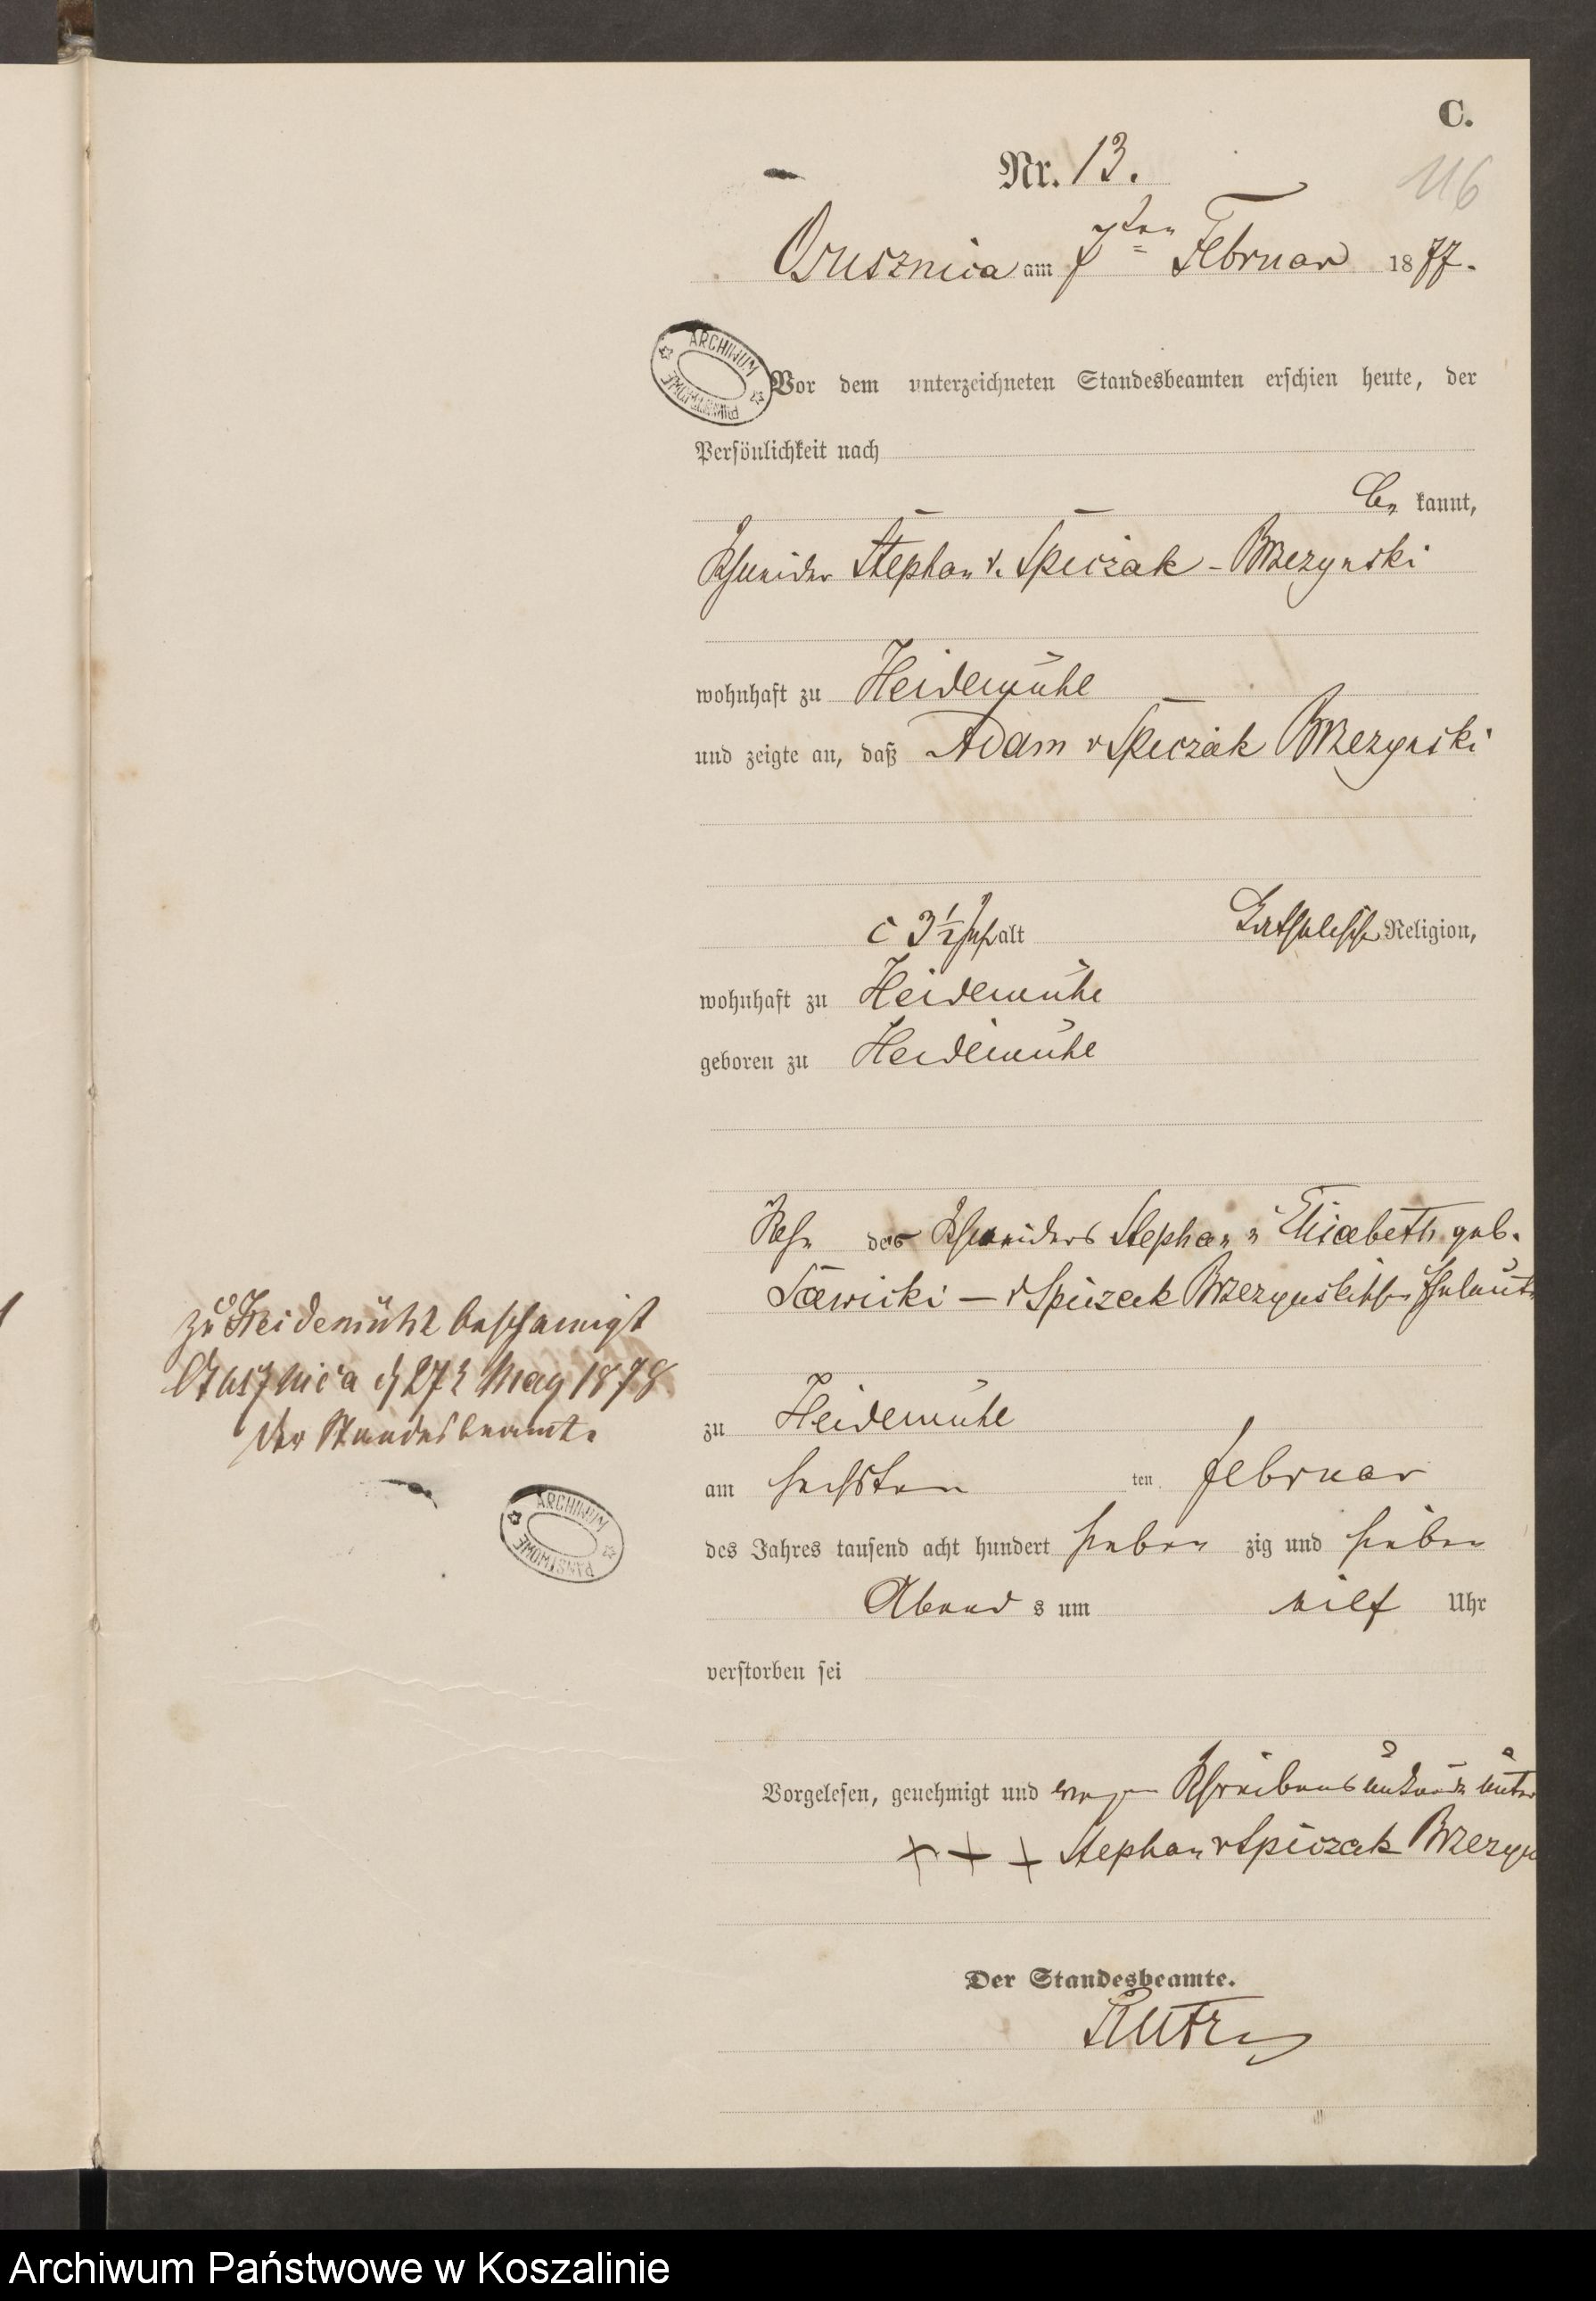 C.
Nr. 13.
116
Osusznica am 7ten Februar 1877.
ARCHIWUM PAŃSTWOWE
Vor dem unterzeichneten Standesbeamten erschien heute, der
Persönlichkeit nach
be kannt,
Schneider Stephan v. Spiczak - Brzezynski
wohnhaft zu Heidemühl
und zeigte an, daß Adam v Spiczak Brzezynski
c 3 1/2 Jahr alt Katholische Religion,
wohnhaft zu Heidemühl
geboren zu Heidemühl
Sohn des Schneiders Stephan u Elisabeth geb.
Sawicki - v Spiczak Brzezynskischen Eheleute
zu Heidemühl
am sechsten ten Februar
des Jahres tausend acht hundert sieben zig und sieben
Abend s um eilf Uhr
verstorben sei
Vorgelesen, genehmigt und wegen Schreibensunkunde unter
+ + + Stephan v Spiczak Brzezyn
Der Standesbeamte.
zu Heidemühl bescheinigt
Osusznica d 27 May 1878
Der Standesbeamte
ARCHIWUM PAŃSTWOWE
Archiwum Państwowe w Koszalinie